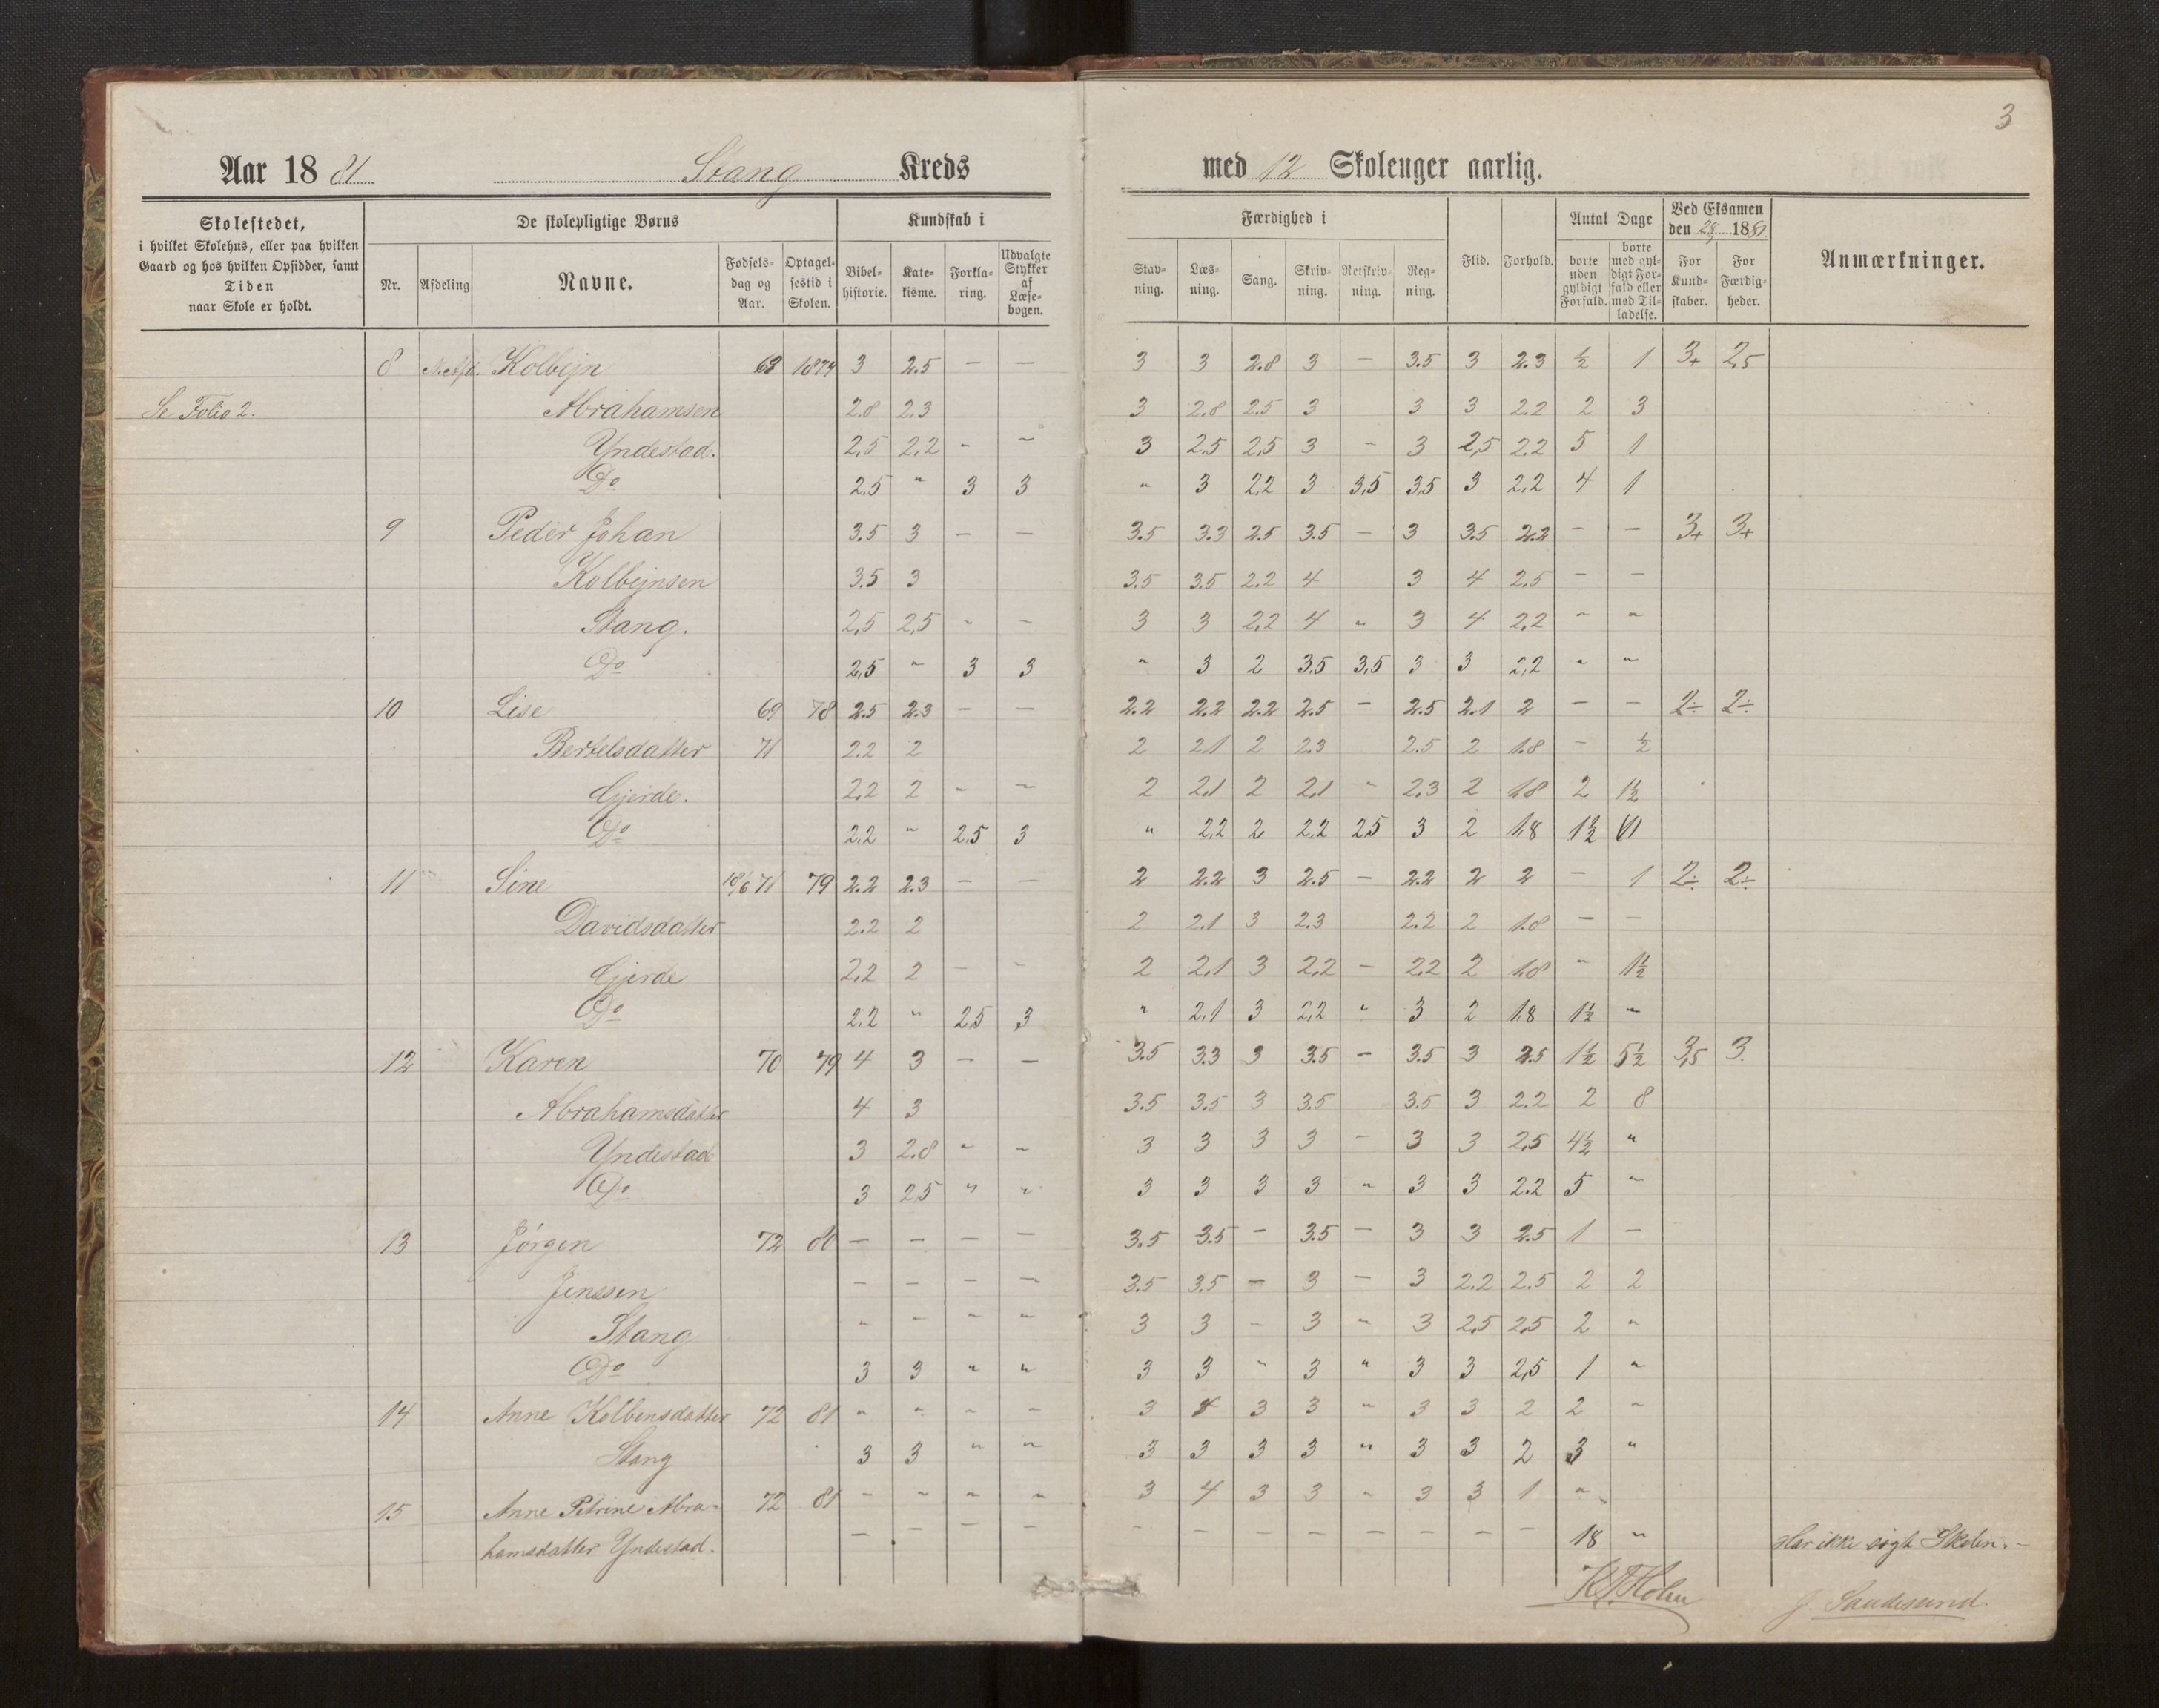 3
Aar 1881 Stang Kreds med 12 Skolenger aarlig.
Skolestedet, i hvilket Skolehus, eller paa hvilken Gaard og hos hvilken Opsidder, samt Tiden naar Skole er holdt.
De skolepligtige Børns
Nr. Afdeling Navne. Fødselsdag og Aar. Optagelsestid i Skolen.
Kundskab i
Bibelhistorie. Katekisme. Forklaring. Udvalgte Stykker af Læsebogen.
Færdighed i
Stavning. Læsning. Sang. Skrivning. Retskrivning. Regning.
Flid. Forhold.
Antal Dage
borte uden gyldigt Forfald. borte med gyldigt Forfald eller med Tilladelse.
Ved Eksamen den 28/ 1881
For Kundskaber. For Færdigheder.
Anmærkninger.
8 N. Afd. Kolbejn 68 1874 3 2.5 — — 3 3 2.8 3 — 3.5 3 2.3 ½ 1 3+ 2,5
Se Folio 2. Abrahamsen 2.8 2.3 3 2.8 2.5 3 3 3 2.2 2 3
Yndestad. 2,5 2,2 - - 3 2,5 2,5 3 - 3 2,5 2,2 5 1
Do 2,5 " 3 3 " 3 2,2 3 3,5 3,5 3 2,2 4 1
9 Peder Johan 3.5 3 — — 3.5 3.3 2.5 3.5 — 3 3.5 2.2 — — 3+ 3+
Kolbejnsen 3.5 3 3.5 3.5 2.2 4 3 4 2.5 — —
Stang. 2,5 2,5 - - 3 3 2,2 4 " 3 4 2,2 " "
Do 2,5 " 3 3 " 3 2 3,5 3,5 3 3 2,2 " "
10 Lise 69 78 2.5 2.3 — — 2.2 2.2 2.2 2.5 — 2.5 2.1 2 — — 2÷ 2÷
Bertelsdatter 71 2.2 2 2 2.1 2 2.3 2.5 2 1.8 - ½
Gjerde. 2,2 2 - - 2 2,1 2 2,1 " 2,3 2 1,8 2 1½
Do 2,2 " 2,5 3 " 2,2 2 2,2 2,5 3 2 1,8 1½
11 Sine 18/6 71 79 2.2 2.3 — — 2 2.2 3 2.5 — 2.2 2 2 — 1 2÷ 2÷
Davidsdatter 2.2 2 2 2.1 3 2.3 2.2 2 1.8 — —
Gjerde 2,2 2 - - 2 2,1 3 2,2 - 2,2 2 1,8 " 1½
Do 2,2 " 2,5 3 " 2,1 3 2,2 " 3 2 1,8 1½ "
12 Karen 70 79 4 3 — — 3.5 3.3 3 3.5 — 3.5 3 2.5 1½ 5½ 3,5 3.
Abrahamsdatter 4 3 3.5 3.5 3 3.5 3.5 3 2.2 2 8
Yndestad 3 2.8 " - 3 3 3 3 - 3 3 2,5 4½ "
Do 3 2,5 " " 3 3 3 3 " 3 3 2.2 5 "
13 Jörgen 72 80 — — — — 3.5 3.5 - 3.5 — 3 3 2.5 1 —
Jenssen — — — — 3.5 3.5 - 3 — 3 2.2 2.5 2 2
Stang " " " " 3 3 - 3 " 3 2,5 2,5 2 "
Do 3 3 " " 3 3 " 3 " 3 3 2,5 1 "
14 Anne Kolbensdatter 72 81 " " " " 3 4 3 3 " 3 3 2 2 "
Stang 3 3 " " 3 3 3 3 " 3 3 2 3 "
15 Anne Petrine Abra- 72 81 " " " " 3 4 3 3 " 3 3 1 "
hamsdatter Yndestad. — — — — — — — — — — — — 18 " Har ikke søgt Skolen. -
J. Sandesund.